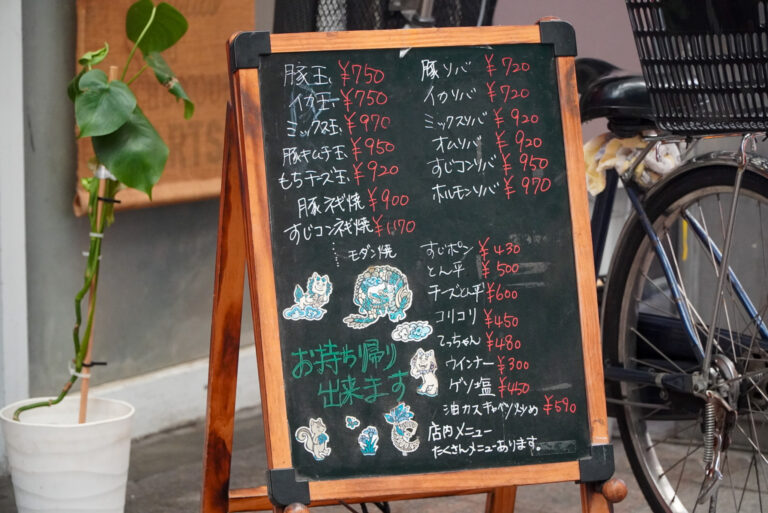 豚玉 ¥750
イカ玉 ¥750
ミックス玉 ¥970
豚キムチ玉 ¥950
もちチーズ玉 ¥920
豚ネギ焼 ¥900
すじコンネギ焼 ¥1,170
モダン焼
豚ソバ ¥720
イカソバ ¥720
ミックスソバ ¥920
オムソバ ¥920
すじコンソバ ¥950
ホルモンソバ ¥970
すじポン ¥430
とん平 ¥500
チーズとん平 ¥600
コリコリ ¥450
てっちゃん ¥480
ウインナー ¥300
ゲソ塩 ¥450
油カスキャベツ炒め ¥590
店内メニュー
たくさんメニューあります。
お持ち帰り
出来ます